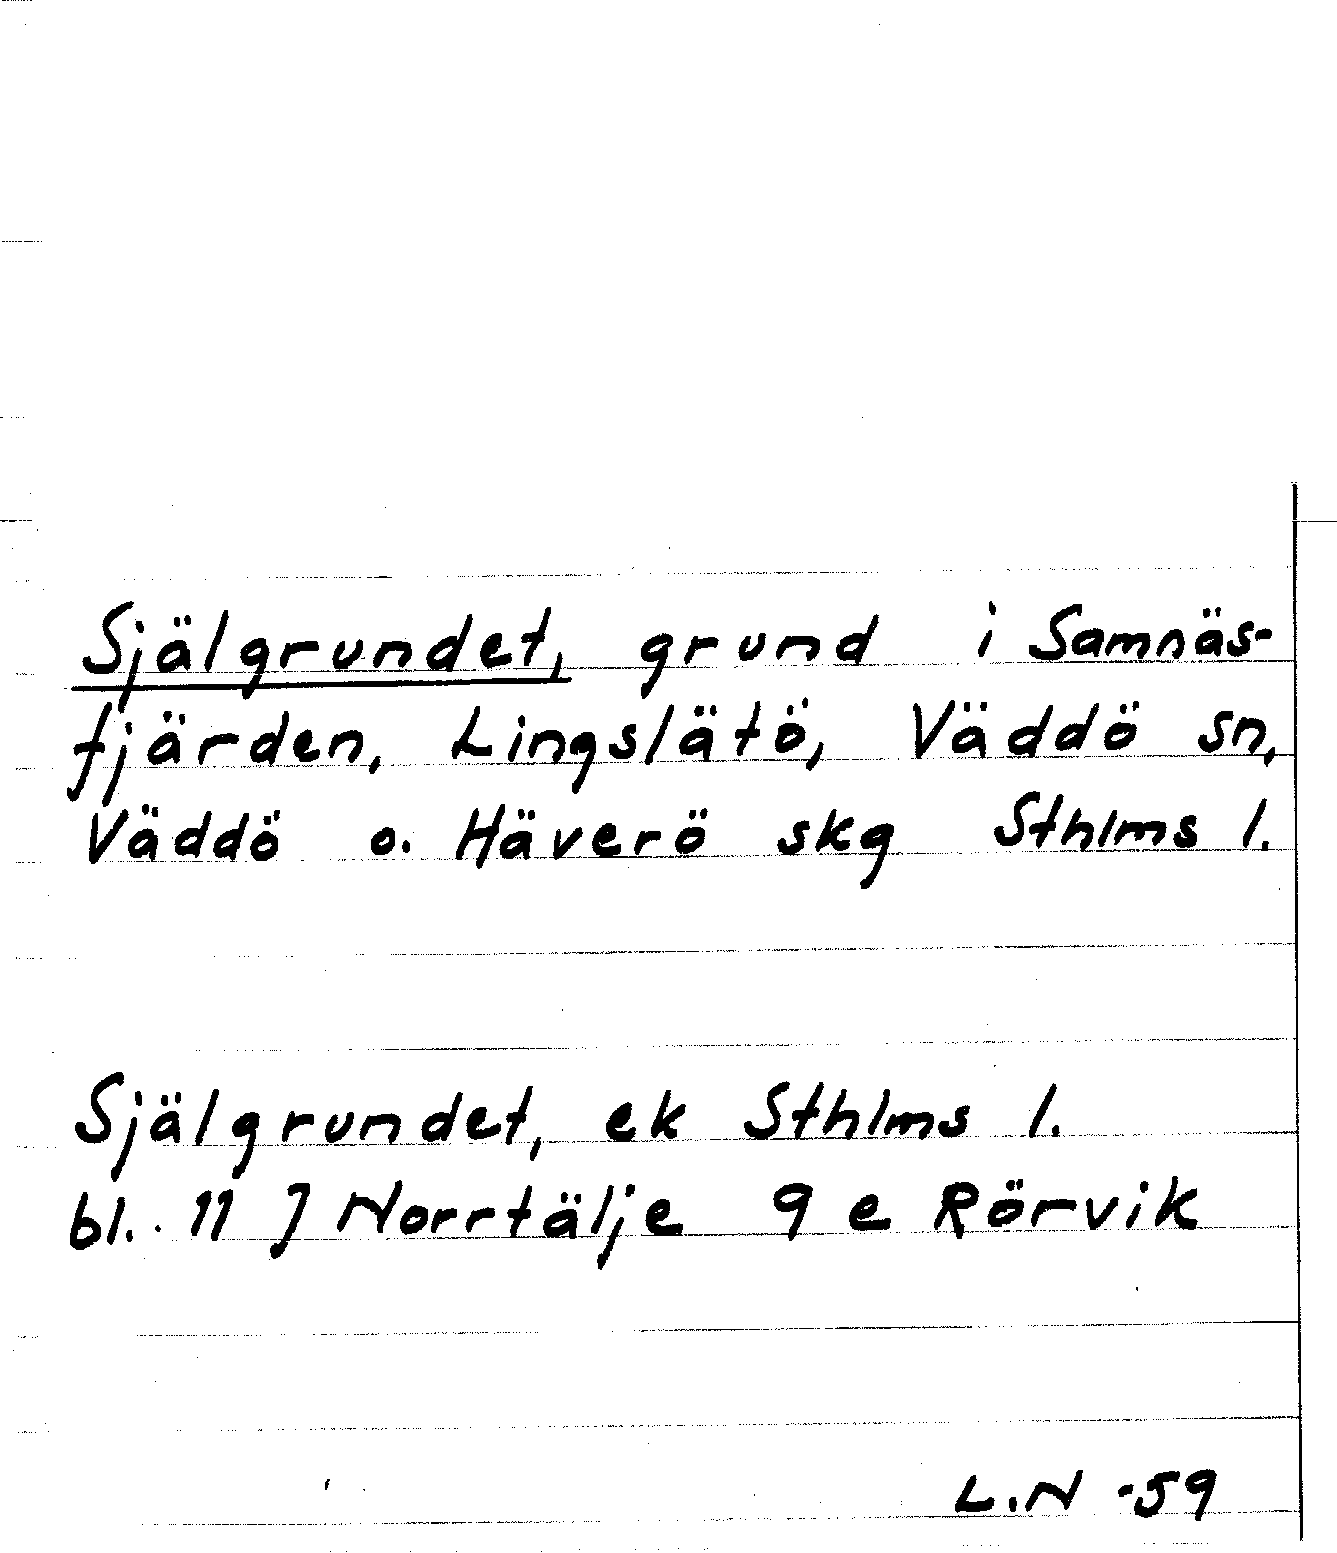 Själgrundet, grund i Samnäs-
fjärden, Lingslätö, Väddö sn,
Väddö o. Häverö skg Sthlms l.
Själgrundet, ek Sthlms l.
bl. 11 J Norrtälje 9 e Rörvik
L.N -59